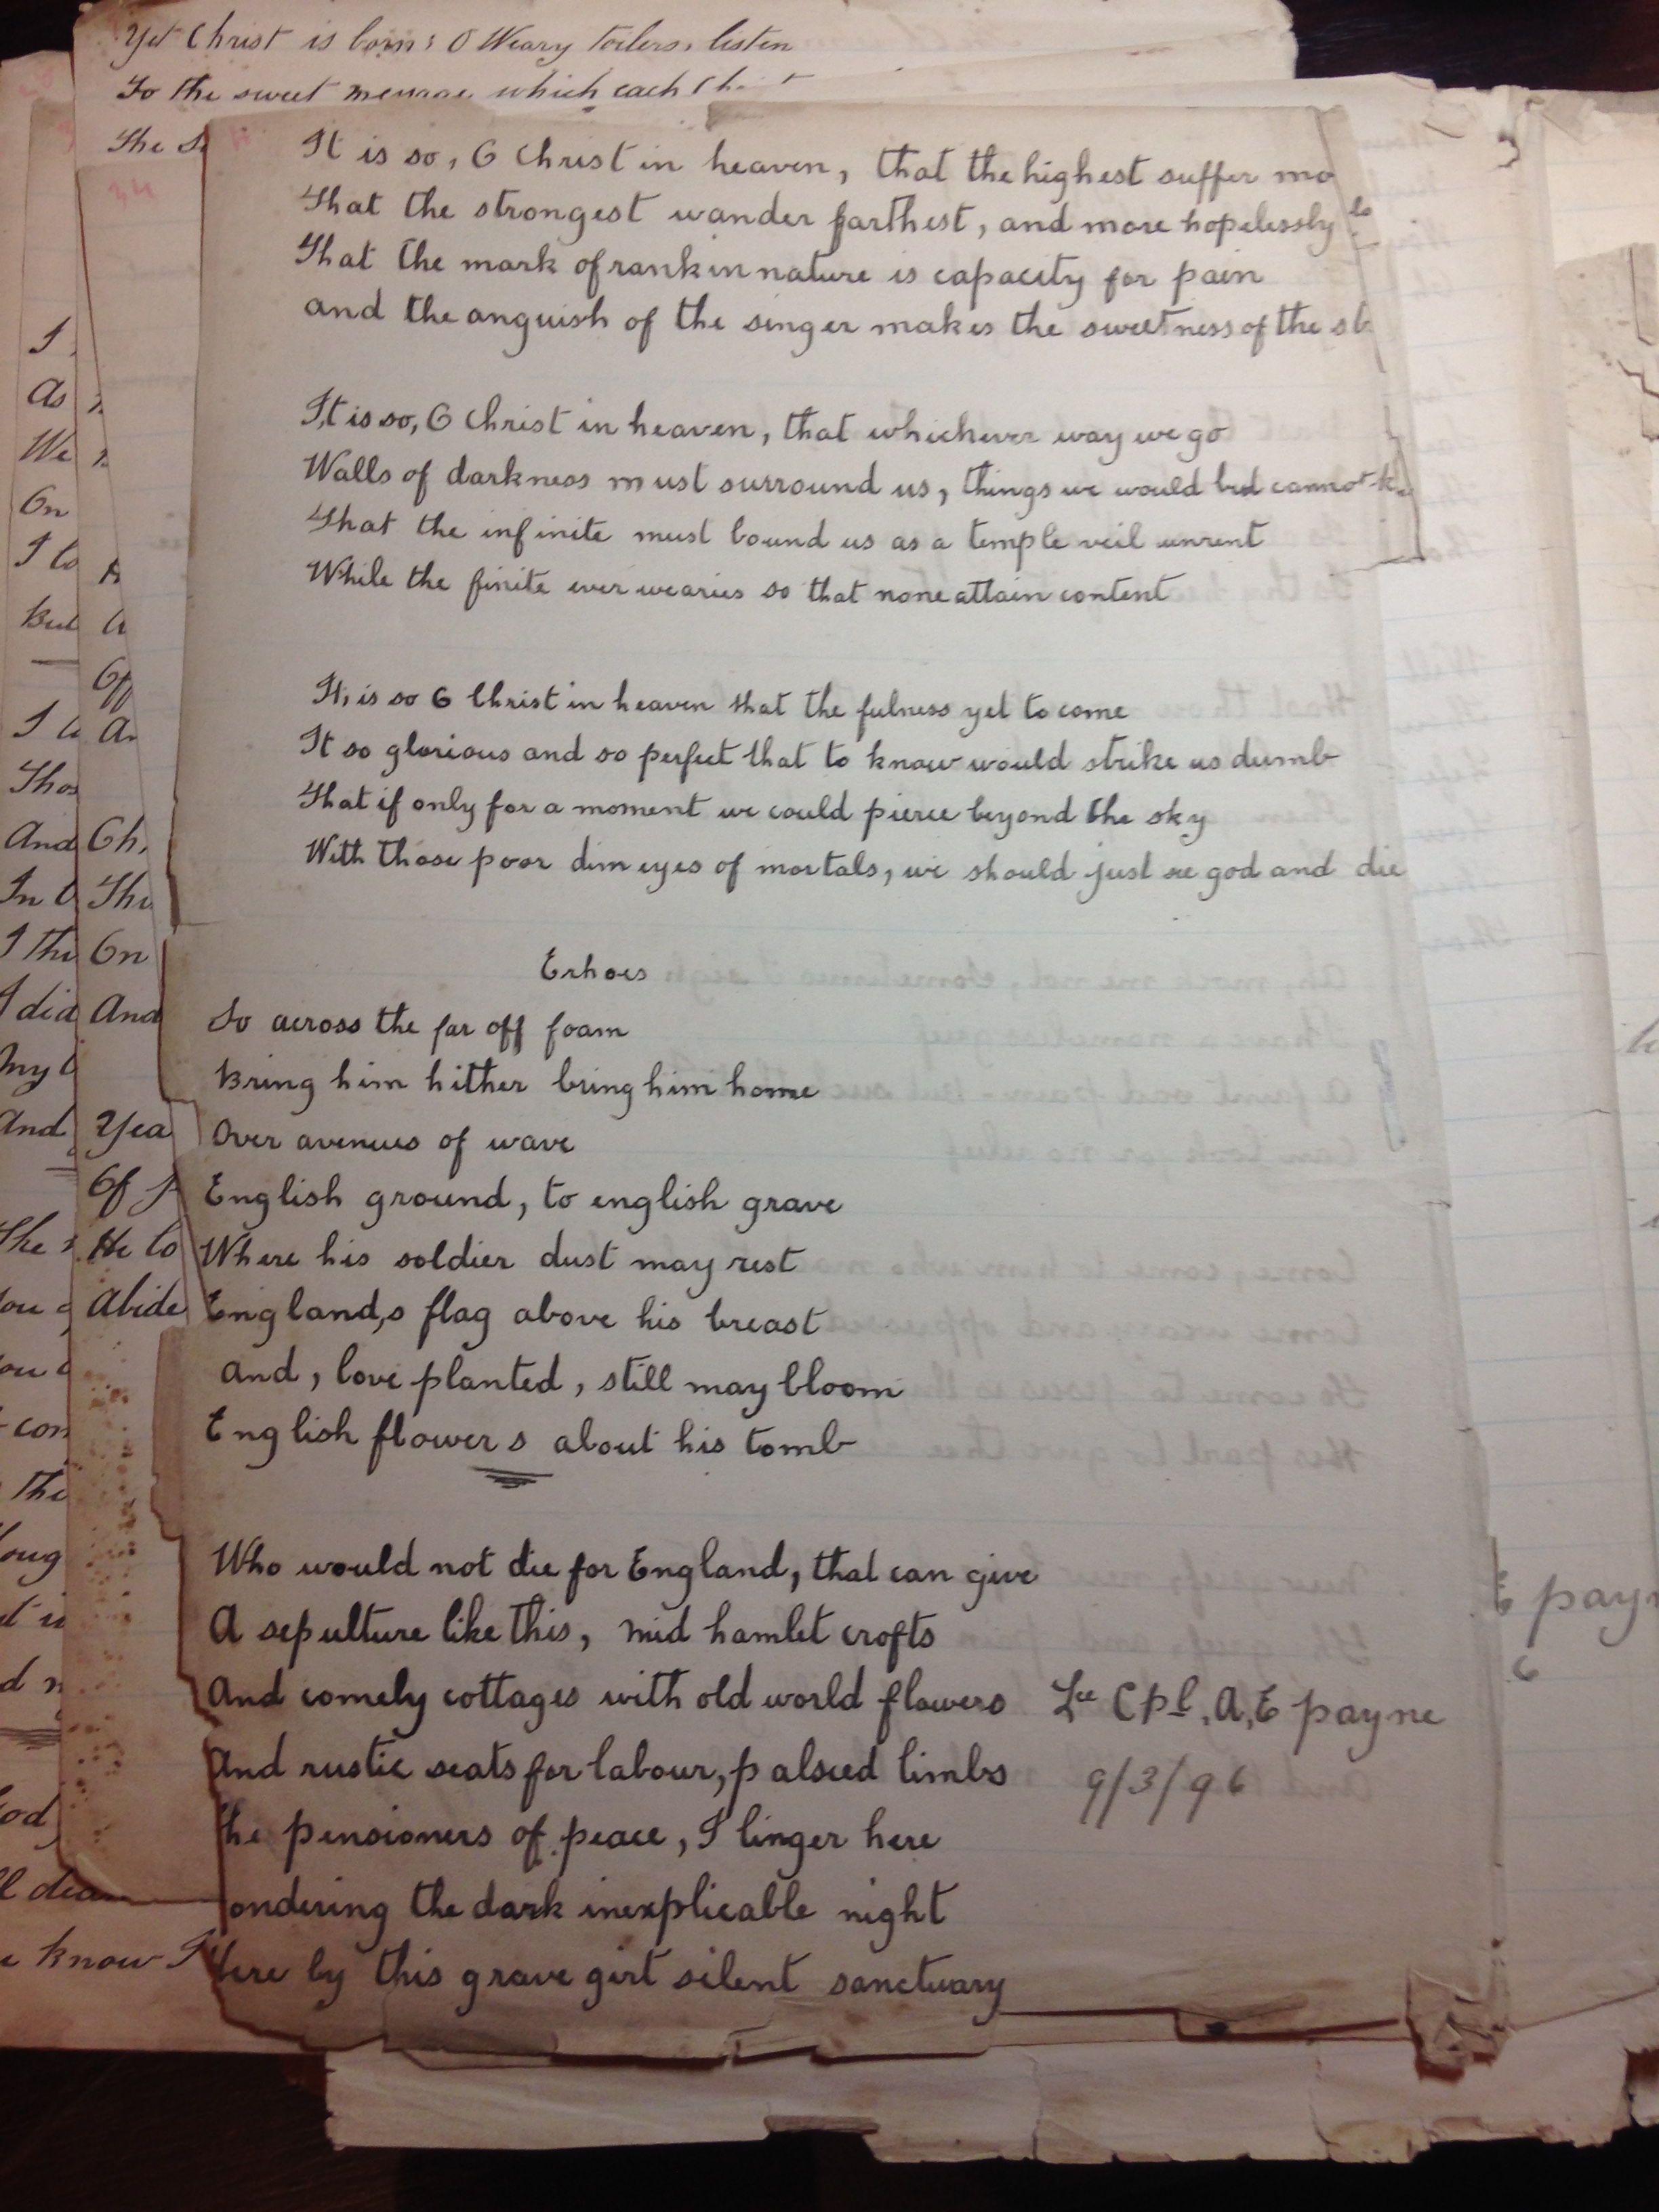 Yet Christ is born; O Weary toilers, listen
To the sweet message which each
The
It is so, O Christ in heaven, that the highest suffer mo
That the strongest wander farthest, and more hopelessly lo
That the mark of rank in nature is capacity for pain
and the anguish of the singer makes the sweetness of the st
It is so, O Christ in heaven, that whichever way we go
Walls of darkness must surround us, things we would but cannot k
That the infinite must bound us as a temple veil unrent
While the finite ever wearies so that none attain content
It, is so O Christ in heaven that the fulness yet to come
It so glorious and so perfect that to know would strike us dumb
That if only for a moment we could pierce beyond the sky
With those poor dim eyes of mortals, we should just see god and die
Echoes
So across the far off foam
Bring him hither bring him home
Over avenues of wave
English ground, to english grave
Where his soldier dust may rest
England,s flag above his breast
and, love planted, still may bloom
English flowers about his tomb
Who would not die for England, that can give
A sepulture like this, mid hamlet crofts
And comely cottages with old world flowers
And rustic seats for labour, palsied limbs
The pensioners of peace, I linger here
ondering the dark inexplicable night
Here by this grave girt silent sanctuary
Lce Cpl, A, E payne
9/3/96
I
As
We
On
I to
But
I
And
In
I thi
I did
my
And
A
Off
An
Oh,
The
On
And
Yea
Of
He to
Abide
know I
E payn
6